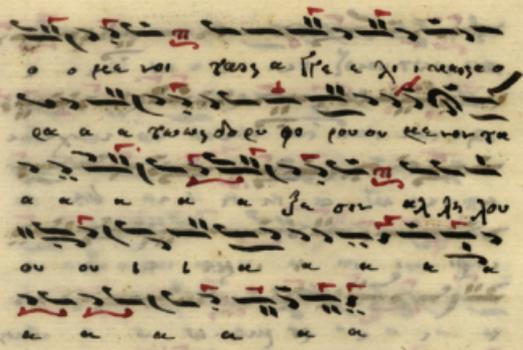 ο ο με νοι ταις α γγε ε λι ι καις α ο
ρα α α τως δο ρυ φο ρου ου με νον τα
α α α α α ξε σιν αλ λη λου
ου ου ι ι α α α α α
α α α α α α